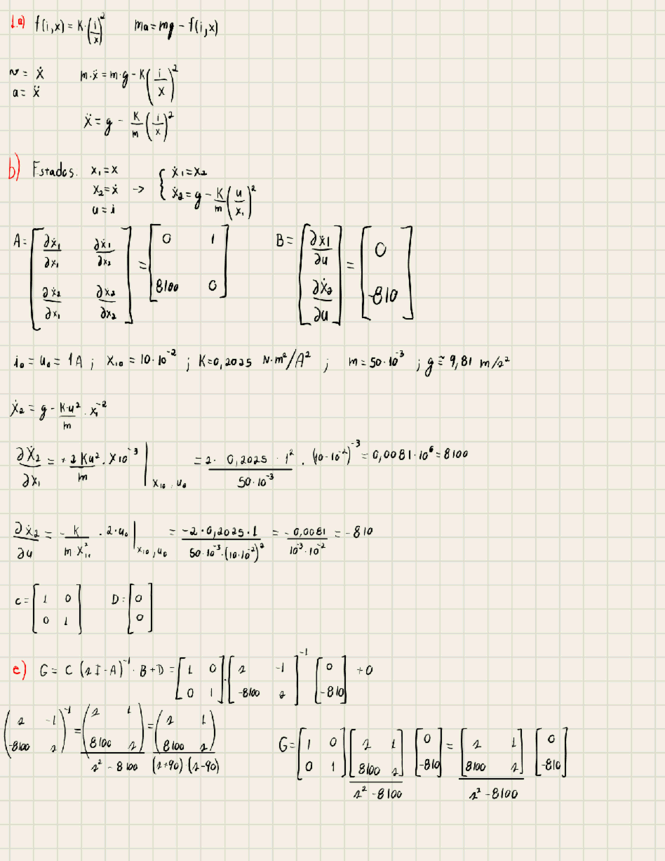 1.a) f(i,x) = K·(i/x)² ma = mg - f(i,x)
v = ẋ m·ẍ = m·g - K(i/x)²
a = ẍ
ẍ = g - K/m (i/x)²
b) Estados. x₁ = x { ẋ₁ = x₂
x₂ = ẋ -> ẋ₂ = g - K/m (u/x₁)²
u = i
A = [∂ẋ₁/∂x₁ ∂ẋ₁/∂x₂ ; ∂ẋ₂/∂x₁ ∂ẋ₂/∂x₂] = [0 1 ; 8100 0] B = [∂ẋ1/∂u ; ∂ẋ₂/∂u] = [0 ; -810]
i₀ = u₀ = 1A ; x₁₀ = 10·10⁻² ; K=0,2025 N·m²/A² ; m = 50·10⁻³ ; g ≅ 9,81 m/s²
ẋ₂ = g - K·u²/m · x₁⁻²
∂ẋ₂/∂x₁ = + 2Ku²/m · x₁₀⁻³ | x₁₀, u₀ = 2·0,2025·1²/50·10⁻³ · (10·10⁻²)⁻³ = 0,0081·10⁶ = 8100
∂ẋ₂/∂u = - K/m x₁₀² · 2·u₀ | x₁₀, u₀ = -2·0,2025·1/50·10⁻³·(10·10⁻²)² = -0,0081/10⁻³·10⁻² = -810
C = [1 0 ; 0 1] D = [0 ; 0]
c) G = C (sI-A)⁻¹·B+D = [1 0 ; 0 1]·[s -1 ; -8100 s]⁻¹ [0 ; -810] +0
(s -1 ; -8100 s)⁻¹ = (s 1 ; 8100 s)/s² - 8100 = (s 1 ; 8100 s)/(s+90)(s-90)
G = [1 0 ; 0 1] [s 1 ; 8100 s]/s² - 8100 [0 ; -810] = [s 1 ; 8100 s]/s² - 8100 [0 ; -810]